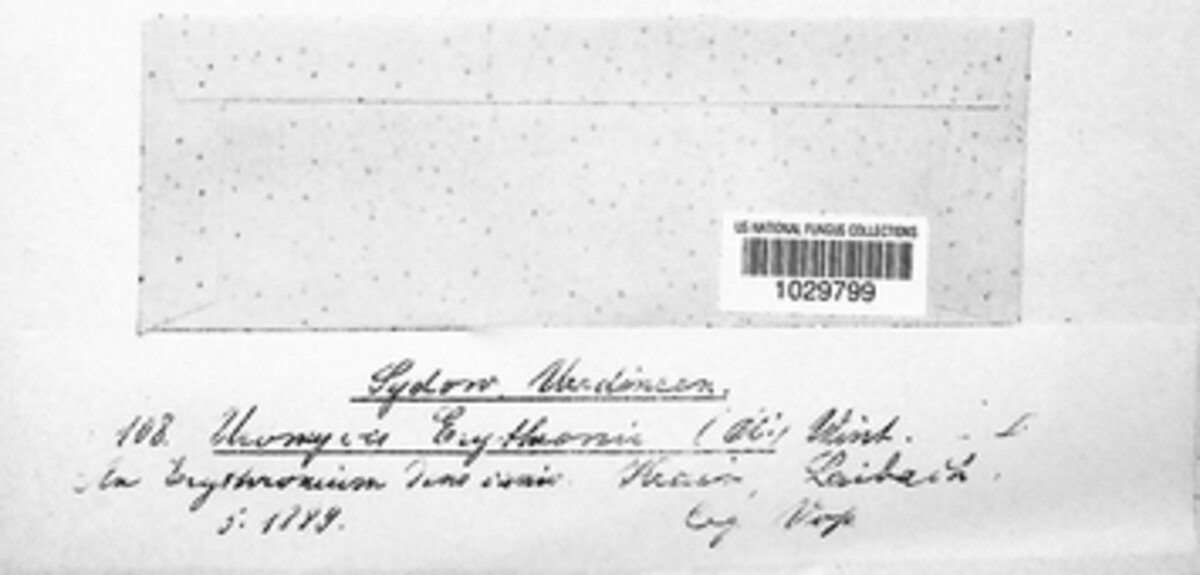 US NATIONAL FUNGUS COLLECTIONS
1029799
Sydow, Uredineen.
108. Uromyces Erythronii (DC.) Wint. I
An Erythronium dens canis. Krain, Laibach.
5. 1889. leg. Voss